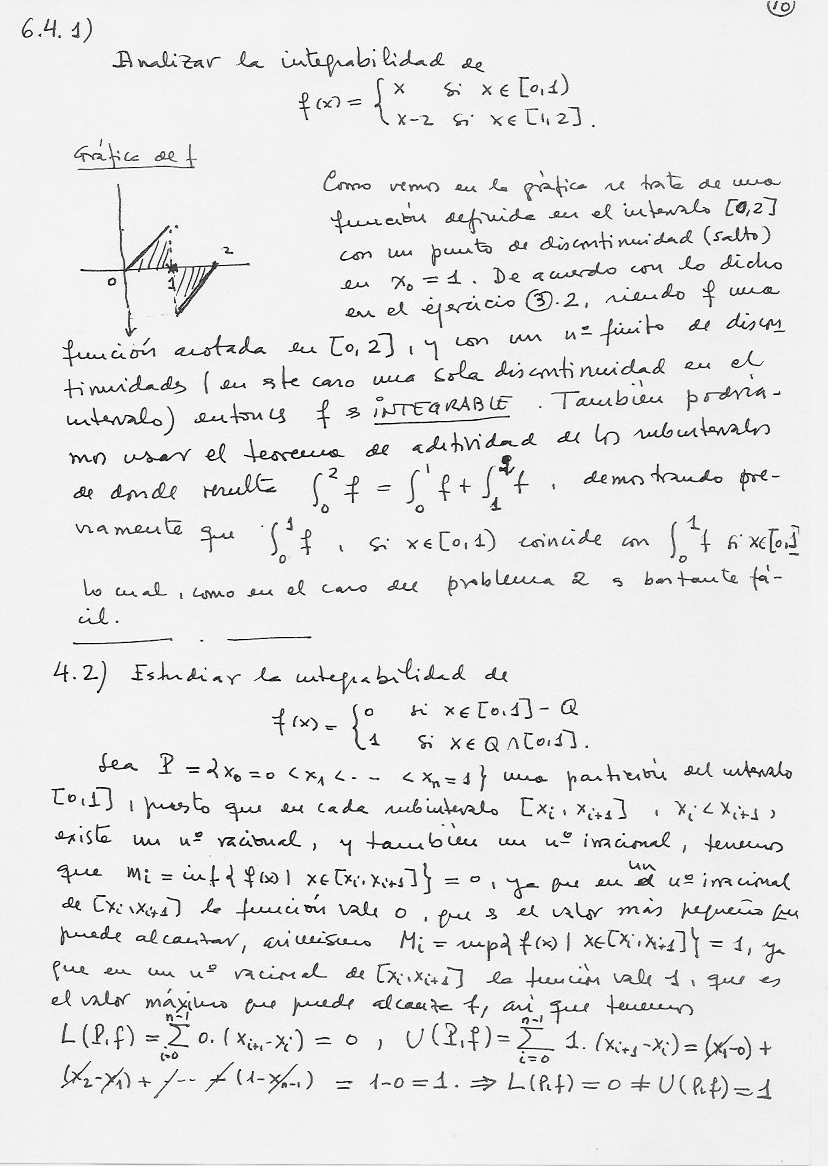 10
6.4.1)
Analizar la integrabilidad de
f(x) = { x si x ∈ [0,1)
x-2 si x ∈ [1,2].
Gráfica de f
0 1 2
Como vemos en la gráfica se trata de una
función definida en el intervalo [0,2]
con un punto de discontinuidad (salto)
en x₀ = 1. De acuerdo con lo dicho
en el ejercicio ③.2, siendo f una
función acotada en [0,2], y con un nº finito de discon
tinuidades (en este caso una sola discontinuidad en el
intervalo) entonces f es INTEGRABLE. También podría-
mos usar el teorema de aditividad de los subintervalos
de donde resulta ∫₀² f = ∫₀¹ f + ∫₁² f, demostrando pre-
viamente que ∫₀¹ f, si x ∈ [0,1) coincide con ∫₀¹ f si x ∈ [0,1]
lo cual, como en el caso del problema 2 es bastante fá-
cil.
4.2) Estudiar la integrabilidad de
f(x) = { 0 si x ∈ [0,1] - Q
1 si x ∈ Q ∩ [0,1].
Sea P = {x₀ = 0 < x₁ < -- < xₙ = 1} una partición del intervalo
[0,1], puesto que en cada subintervalo [xᵢ, xᵢ₊₁], xᵢ < xᵢ₊₁,
existe un nº racional, y también un nº irracional, tenemos
que mᵢ = inf{f(x) | x ∈ [xᵢ, xᵢ₊₁]} = 0, ya que en un nº irracional
de [xᵢ, xᵢ₊₁] la función vale 0, que es el valor más pequeño que
puede alcanzar, asimismo Mᵢ = sup{f(x) | x ∈ [xᵢ, xᵢ₊₁]} = 1, ya
que en un nº racional de [xᵢ, xᵢ₊₁] la función vale 1, que es
el valor máximo que puede alcanzar f, así que tenemos
L(P,f) = ∑ᵢ₌₀ⁿ⁻¹ 0.(xᵢ₊₁-xᵢ) = 0, U(P,f) = ∑ᵢ₌₀ⁿ⁻¹ 1.(xᵢ₊₁-xᵢ) = (x₁-0) +
(x₂-x₁) + -- + (1-xₙ₋₁) = 1-0 = 1. ⇒ L(P,f) = 0 ≠ U(P,f) = 1